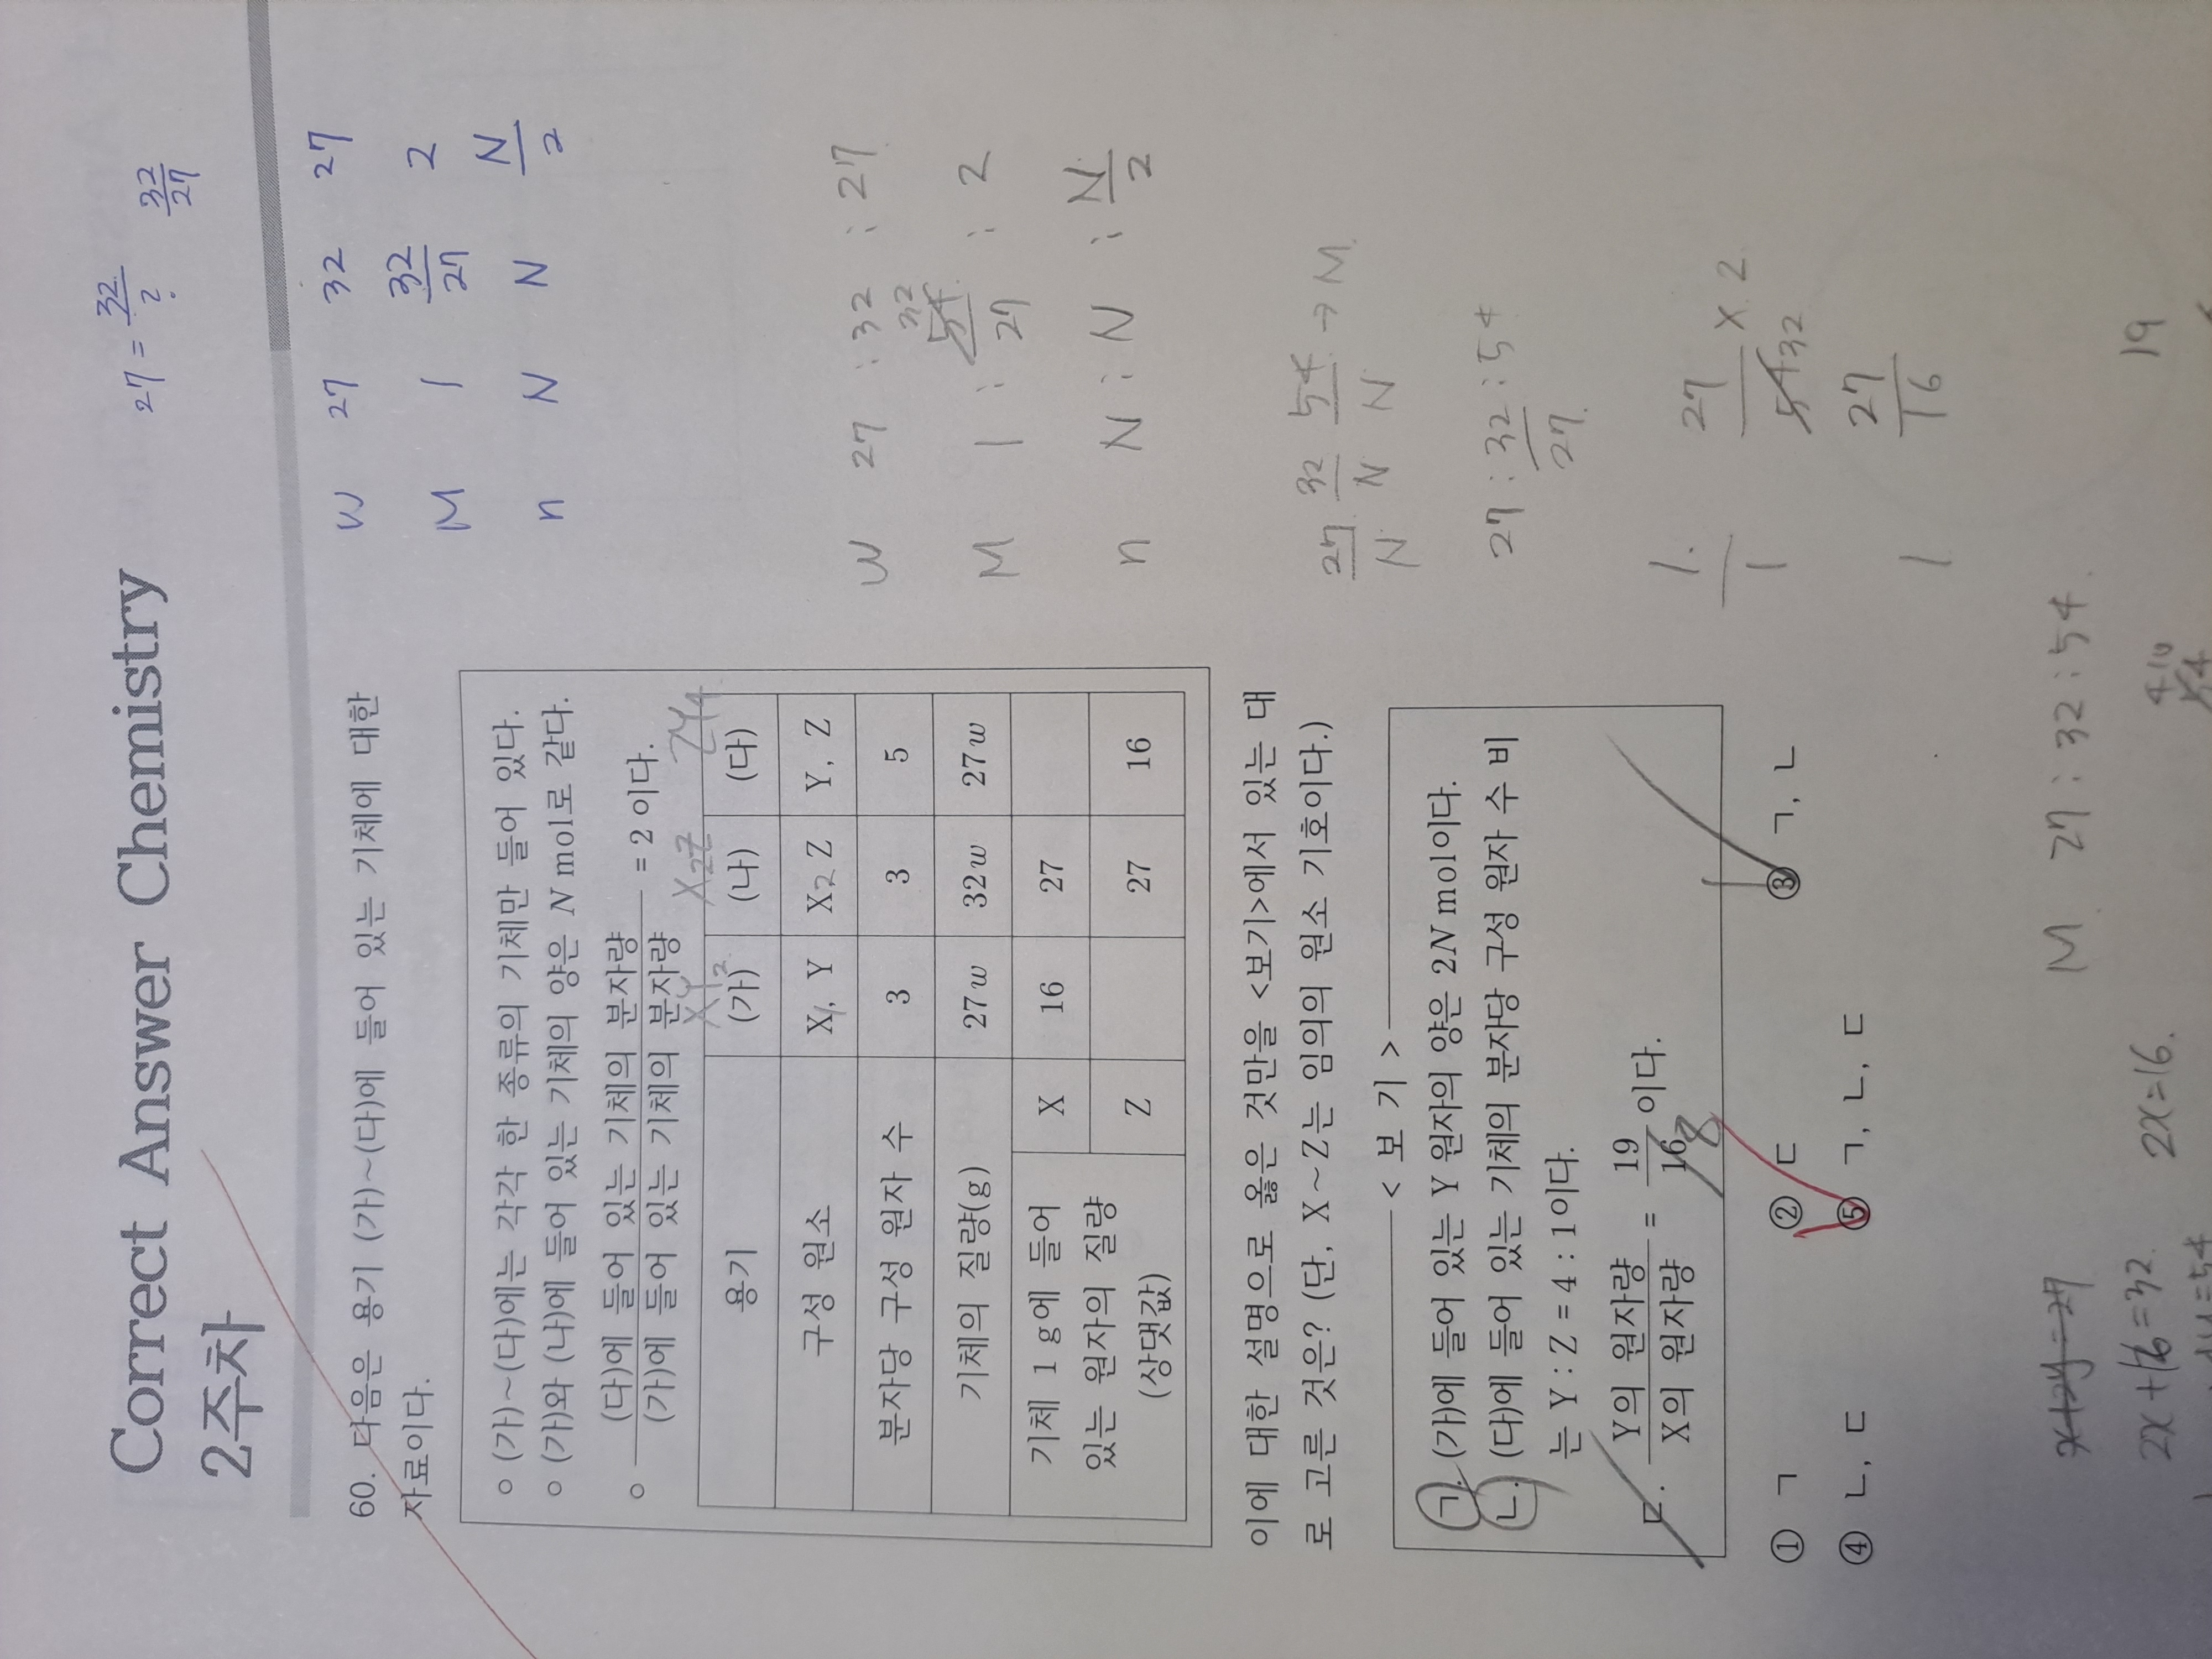 Correct Answer Chemistry
2주차
60. 다음은 용기 (가)~(다)에 들어 있는 기체에 대한
자료이다.
○ (가)~(다)에는 각각 한 종류의 기체만 들어 있다.
○ (가)와 (나)에 들어 있는 기체의 양은 N mol로 같다.
○ (다)에 들어 있는 기체의 분자량 / (가)에 들어 있는 기체의 분자량 = 2 이다.
XY2 X2Z ZY4
용기 (가) (나) (다)
구성 원소 X, Y X2 Z Y, Z
분자당 구성 원자 수 3 3 5
기체의 질량(g) 27w 32w 27w
기체 1 g에 들어 있는 원자의 질량 (상댓값) X 16 27
Z 27 16
이에 대한 설명으로 옳은 것만을 <보기>에서 있는 대
로 고른 것은? (단, X~Z는 임의의 원소 기호이다.)
< 보 기 >
ㄱ. (가)에 들어 있는 Y 원자의 양은 2N mol이다.
ㄴ. (다)에 들어 있는 기체의 분자당 구성 원자 수 비
는 Y : Z = 4 : 1이다.
ㄷ. Y의 원자량 / X의 원자량 = 19/16 이다.
8
① ㄱ ② ㄷ ③ ㄱ, ㄴ
④ ㄴ, ㄷ ⑤ ㄱ, ㄴ, ㄷ
27 = 32/? 32/27
W 27 32 27
M 1 32/27 2
n N N N/2
W 27 : 32 : 27
M 1 : 32/27 : 2
n N : N : N/2
27/N 32/N 54/N → M
27 : 32/27 : 54
1/1 27/32 × 2
1 27/16
M 27 : 32 : 54
x+2y=27
2x+16=32 2x=16.
19